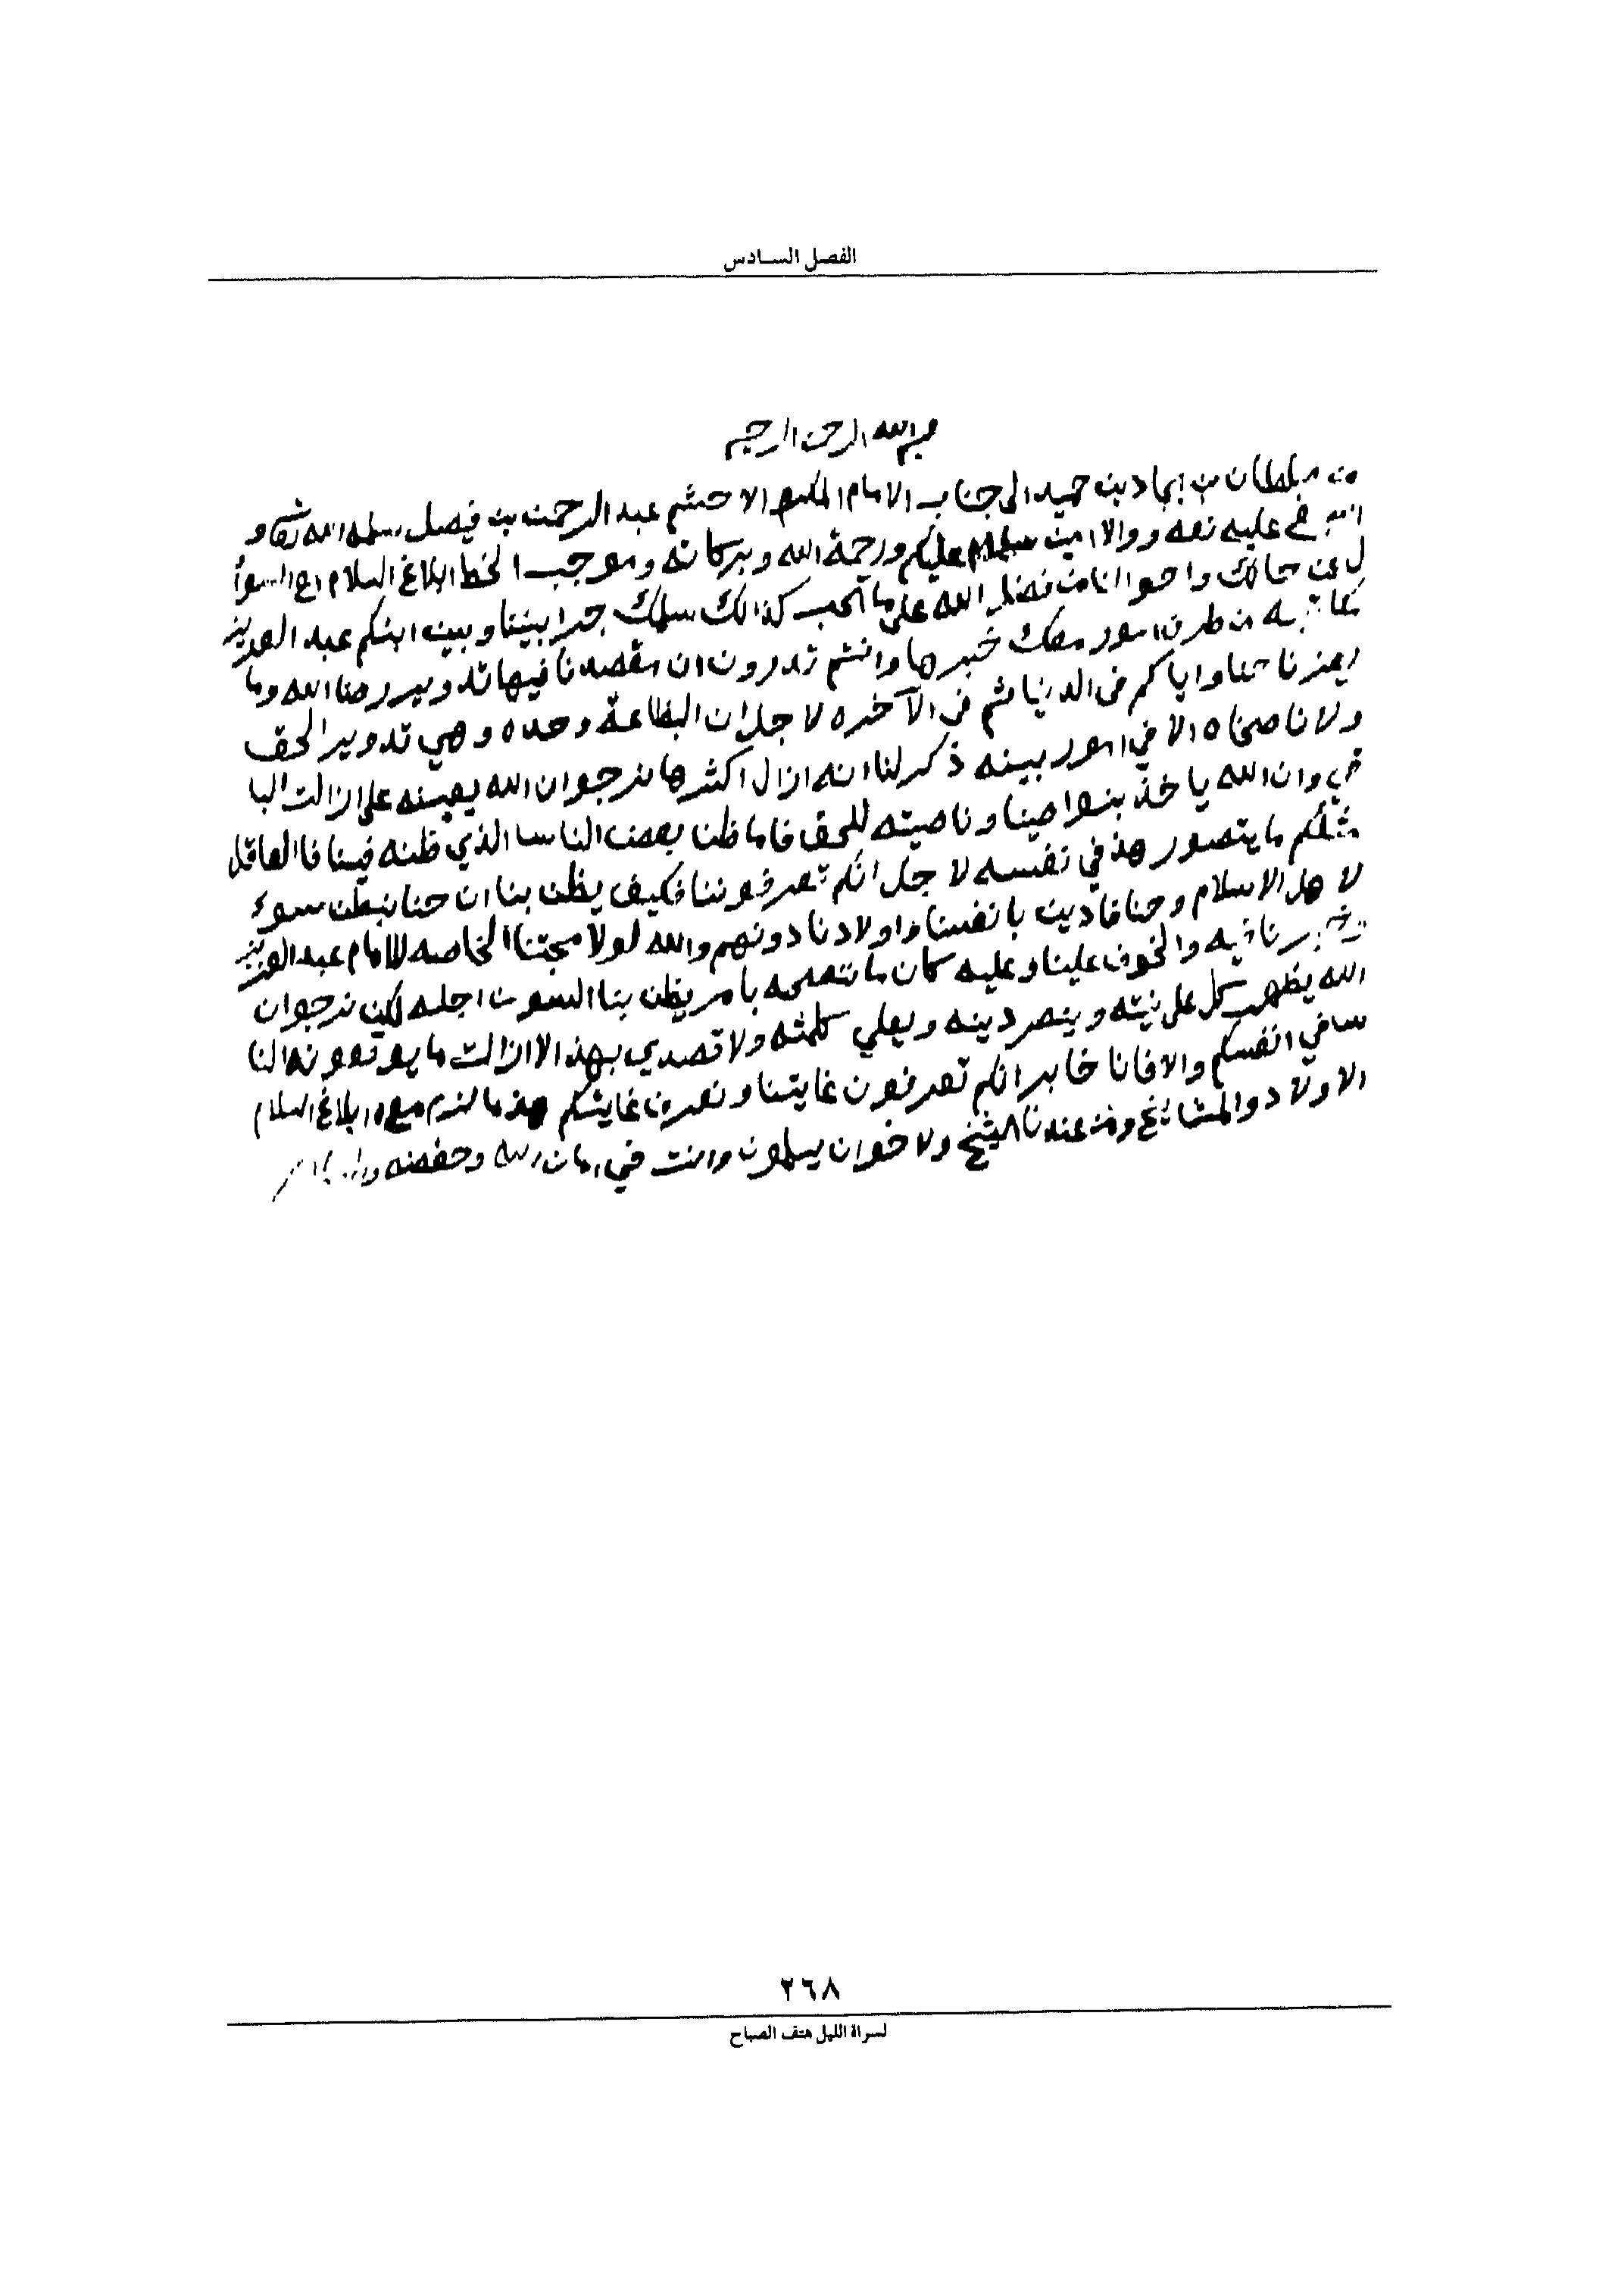 الفصل السادس
بسم الله الرحمن الرحيم
من سلطان بن ابجاد بن حميد الى جناب الامام المكرم الاحشم عبد الرحمن بن فيصل سلمه الله تعالى و
عليه نعمه ووالا امين سلام عليكم ورحمة الله وبركاته وموجب الخط ابلاغ السلام مع السوأ
ل عن حالك واحوالنا من فضل الله على ما تحب كذالك سلمك جرا بيننا وبين ابنكم عبد العزيز
مكاتبه من طرف امور معك خبرها وانتم تدرون ان مقصدنا فيها تدوير رضا الله وما
يعزنا حنا واياكم في الدنيا ثم في الآخره لاجل ان البطاعة وحده وهي تدوير الحق
ولا ناصحناه الا في امور بينه ذكر لنا انه ازال اكثرها نرجوا ن الله يعينه على ازالت البا
قي وان الله ياخذ بنواصينا وناصيته للحق فاما ظن بعض الناس الذي ظنه فينا فا العاقل
مثلكم ما يتصور هذ في نفسه لاجل انكم تعرفوننا فكيف يظن بنا ان حنا نبطن سوء
لاهل الاسلام وحنا فادين بانفسنا واولادنا دونهم والله لولا محبتنا الخاصه للامام عبد العزيز
فيه والخوف علينا وعليه كان ما ننصحه بامر يظن بنا السوء من اجله لكن نرجوا ن
الله يظهر كل على نيته وينصر دينه ويعلي كلمته ولا قصدي بهذ الا ازالت ما يوقعونه لنا
سا في انفسكم والا فانا خابر انكم تعرفون غايتنا ونعرف غايتكم هذ ما لزم مع ابلاغ السلام
الاولاد والمشائخ ومن عندنا الشيخ ولاخوان يسلمون وانت في امان الله وحفضه والسلام
٢٦٨
لسراة الليل هتف الصباح